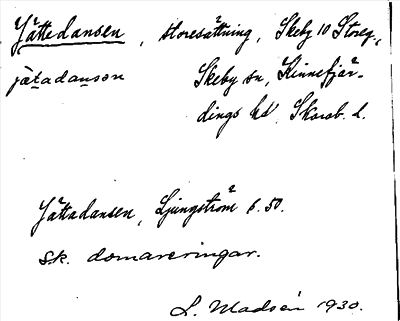 Jättedansen, storesättning, Skeby 10 Storeg.,
jätadansen Skeby sn, Kinnefjär-
dings hd, Skarab. l.
Jättadansen, Ljungström s. 50.
s.k. domareringar.
L. Madsén 1930.